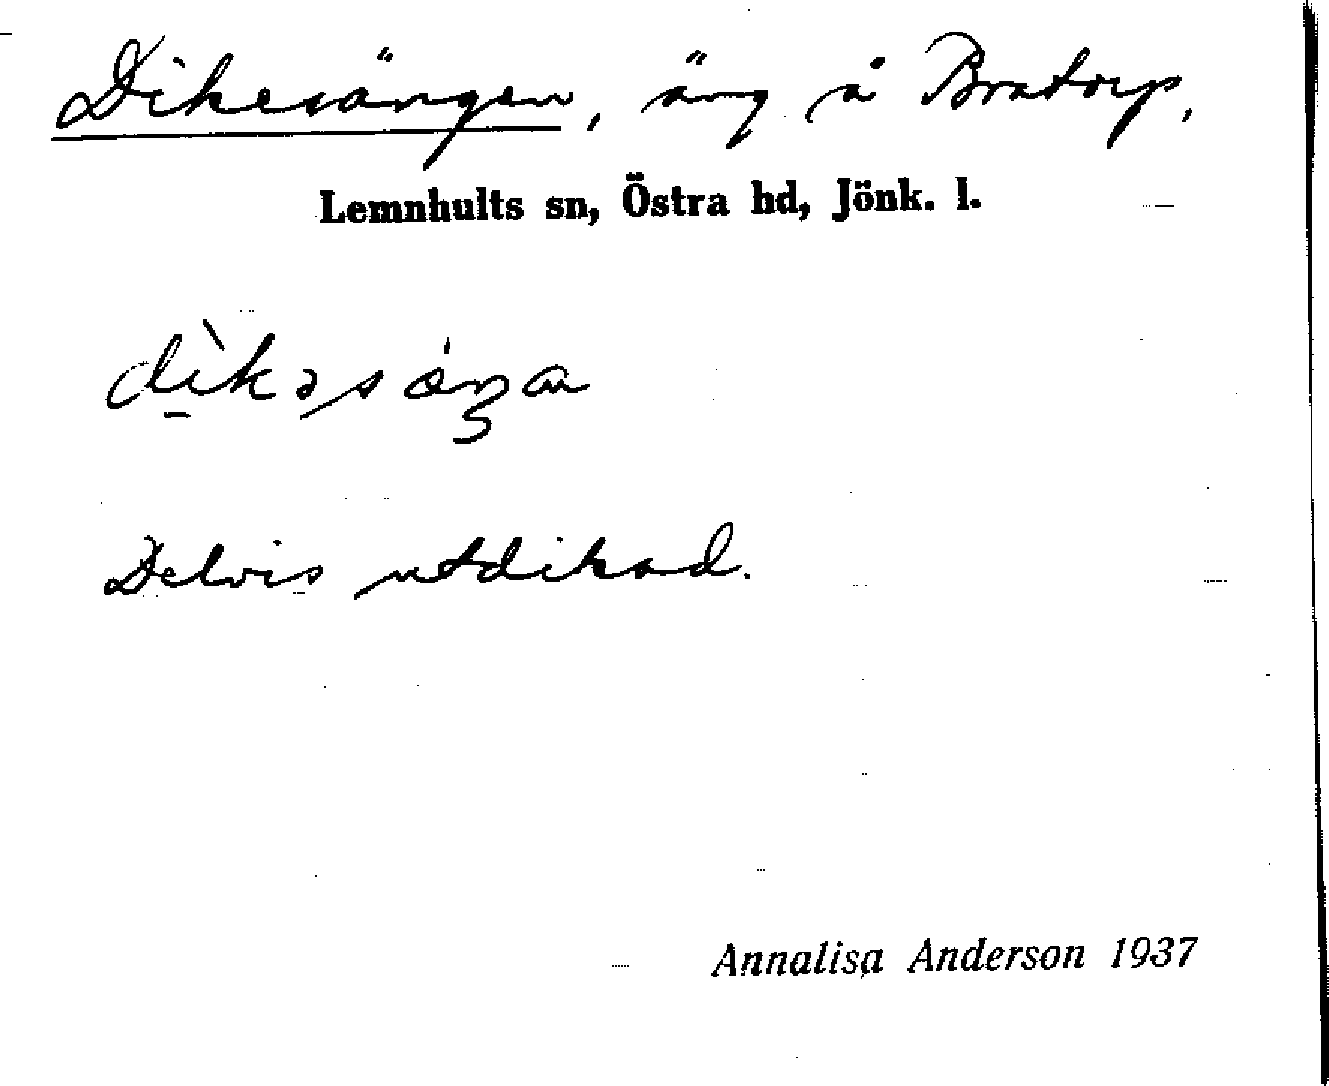 Dikesängen, äng å Bratorp,
Lemnhults sn, Östra hd, Jönk. l.
Delvis utdikad.
Annalisa Anderson 1937